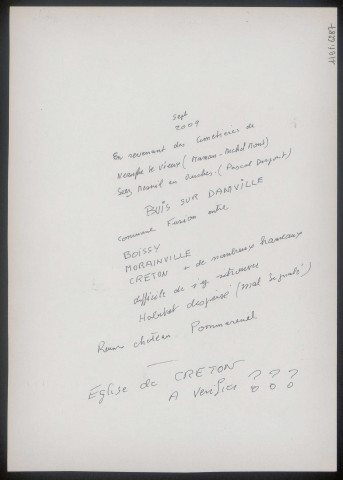 Sept
2009
En revenant des Cimetières de
Neaufle le Vieux (Maman - Michel Mont)
Saz Mesnil en Ouches (Pascal Dupont)
BUIS SUR DAMVILLE
commune Fusion entre
BOISSY
MORAINVILLE
CRETON et de nombreux hameaux
difficile de s'y retrouver
Habitat dispersé (mal signalé)
Ruines chateau Pommereuil
Eglise de CRETON
A Verifier ? ? ?